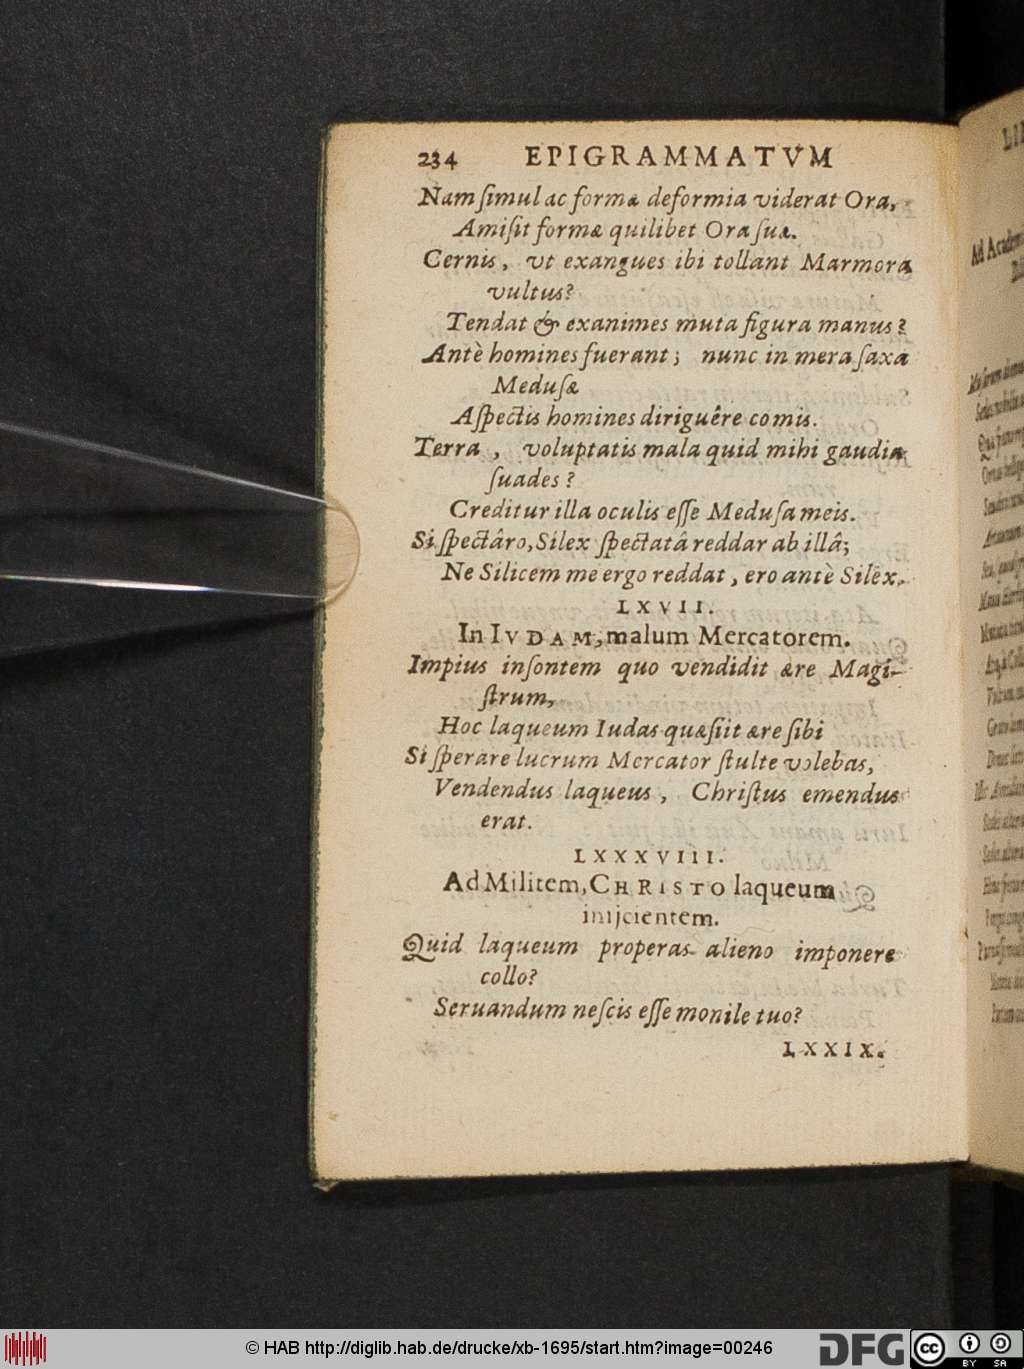 234 EPIGRAMMATVM
Nam ſimul ac formæ deformia viderat Ora,
Amiſit formæ quilibet Ora ſuæ.
Cernis, vt exangues ibi tollant Marmora
vultus?
Tendat & exanimes muta figura manus?
Antè homines fuerant; nunc in mera ſaxa
Meduſæ
Aſpectis homines diriguêre comis.
Terra, voluptatis mala quid mihi gaudia
ſuades?
Creditur illa oculis eſſe Meduſa meis.
Si ſpectâro, Silex ſpectatâ reddar ab illâ;
Ne Silicem me ergo reddat, ero antè Silex.
LXVII.
In IVDAM, malum Mercatorem.
Impius inſontem quo vendidit ære Magi-
ſtrum,
Hoc laqueum Iudas quæſiit ære ſibi
Si ſperare lucrum Mercator ſtulte volebas,
Vendendus laqueus, Chriſtus emendus
erat.
LXXXVIII.
Ad Militem, CHRISTO laqueum
inijcientem.
Quid laqueum properas alieno imponere
collo?
Seruandum neſcis eſſe monile tuo?
LXXIX.
© HAB http://diglib.hab.de/drucke/xb-1695/start.htm?image=00246
DFG
cc
BY SA